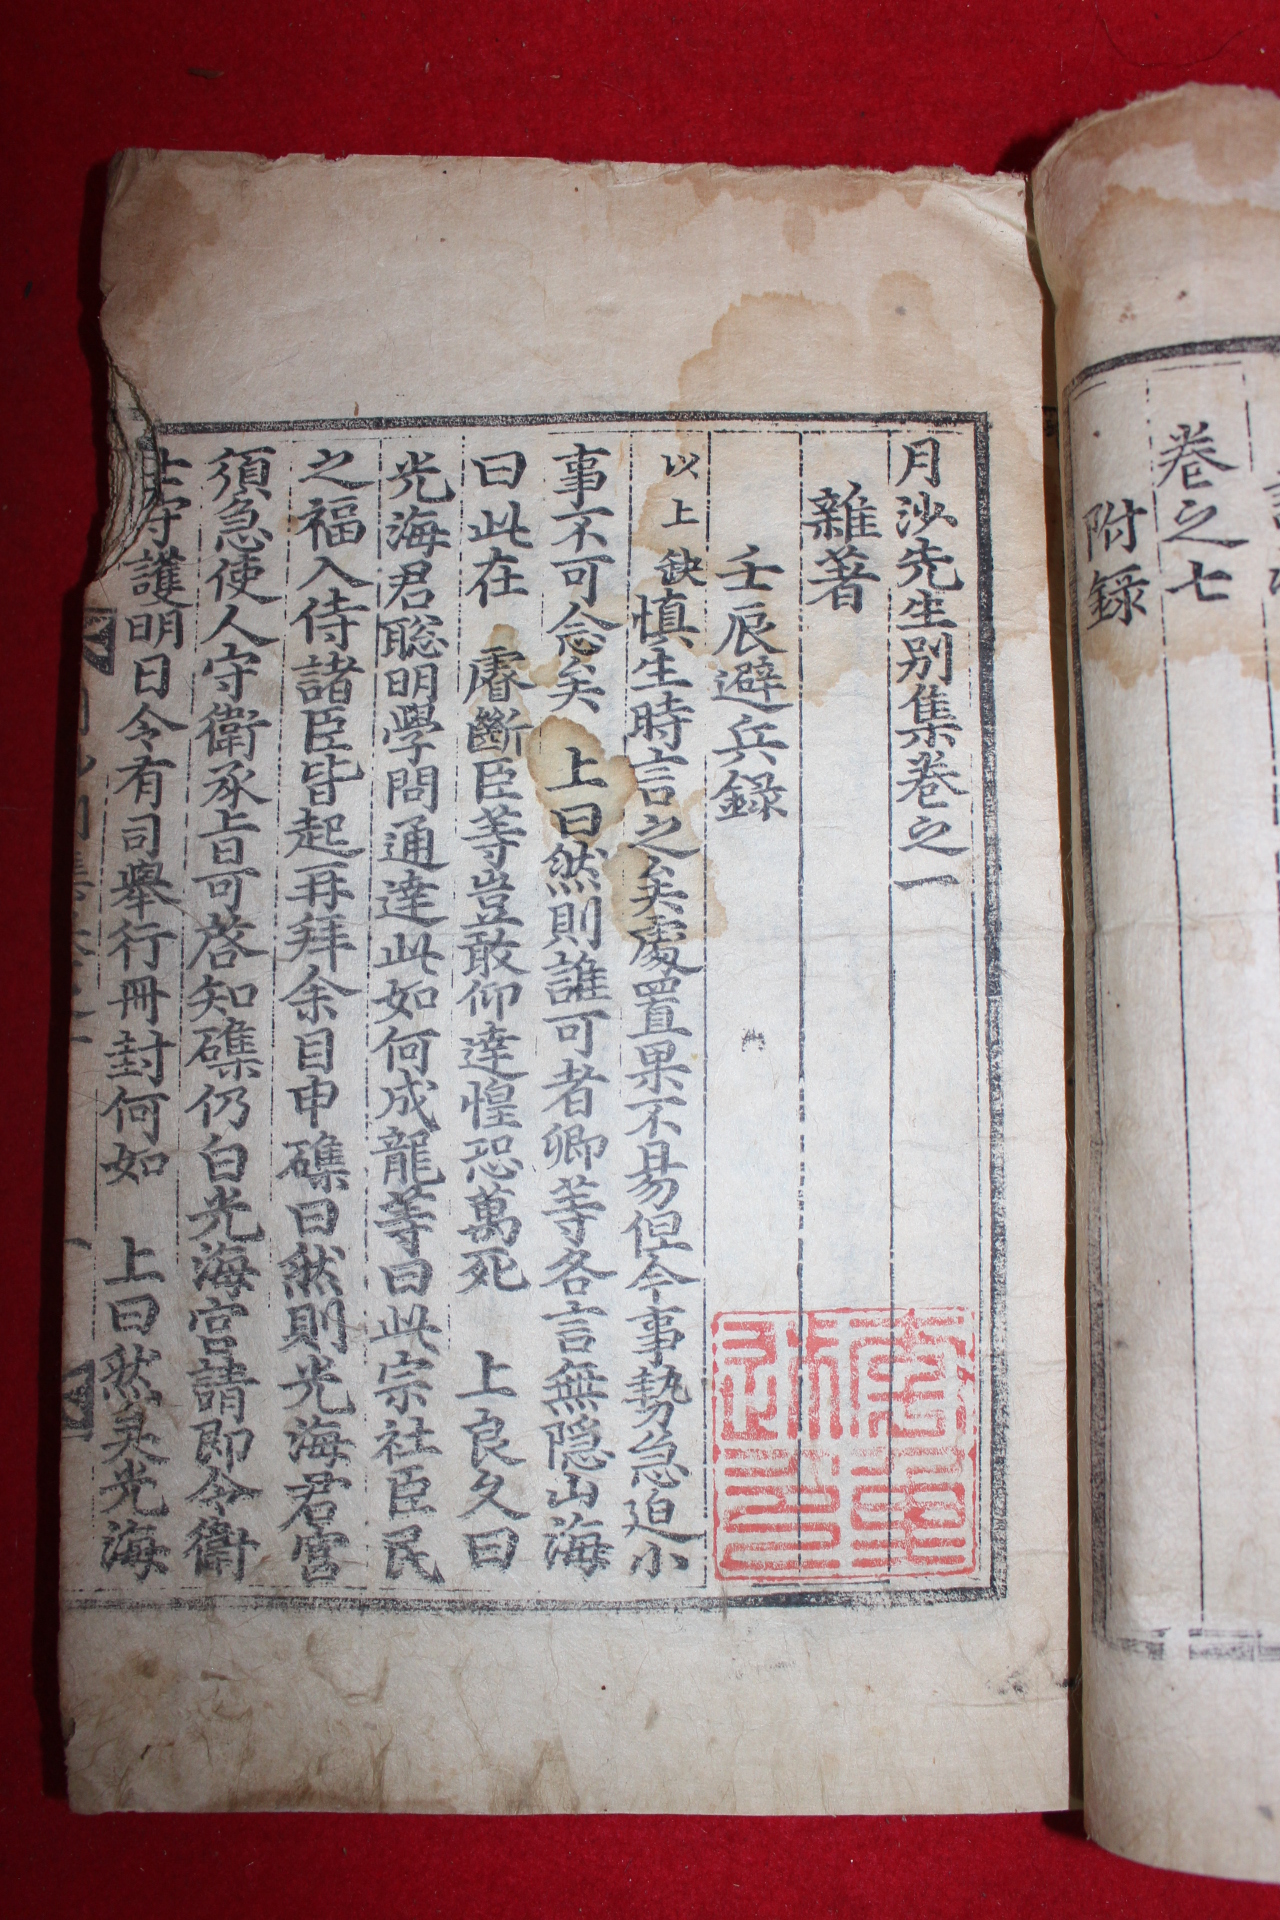 卷之七
附録
月沙先生別集卷之一
雜著
壬辰避兵録
以上缺愼生時言之矣處置果不易但今事勢急迫小
事不可念矣 上曰然則誰可者卿等各言無隱山海
曰此在 睿斷臣等豈敢仰達惶恐萬死 上良久曰
光海君聡明學問通達此如何成龍等曰此宗社臣民
之福入侍諸臣皆起再拜余目申磼曰然則光海君宮
須急使人守衛承旨可啓知磼仍白光海宮請即令衛
士守護明日令有司舉行冊封何如 上曰然矣光海